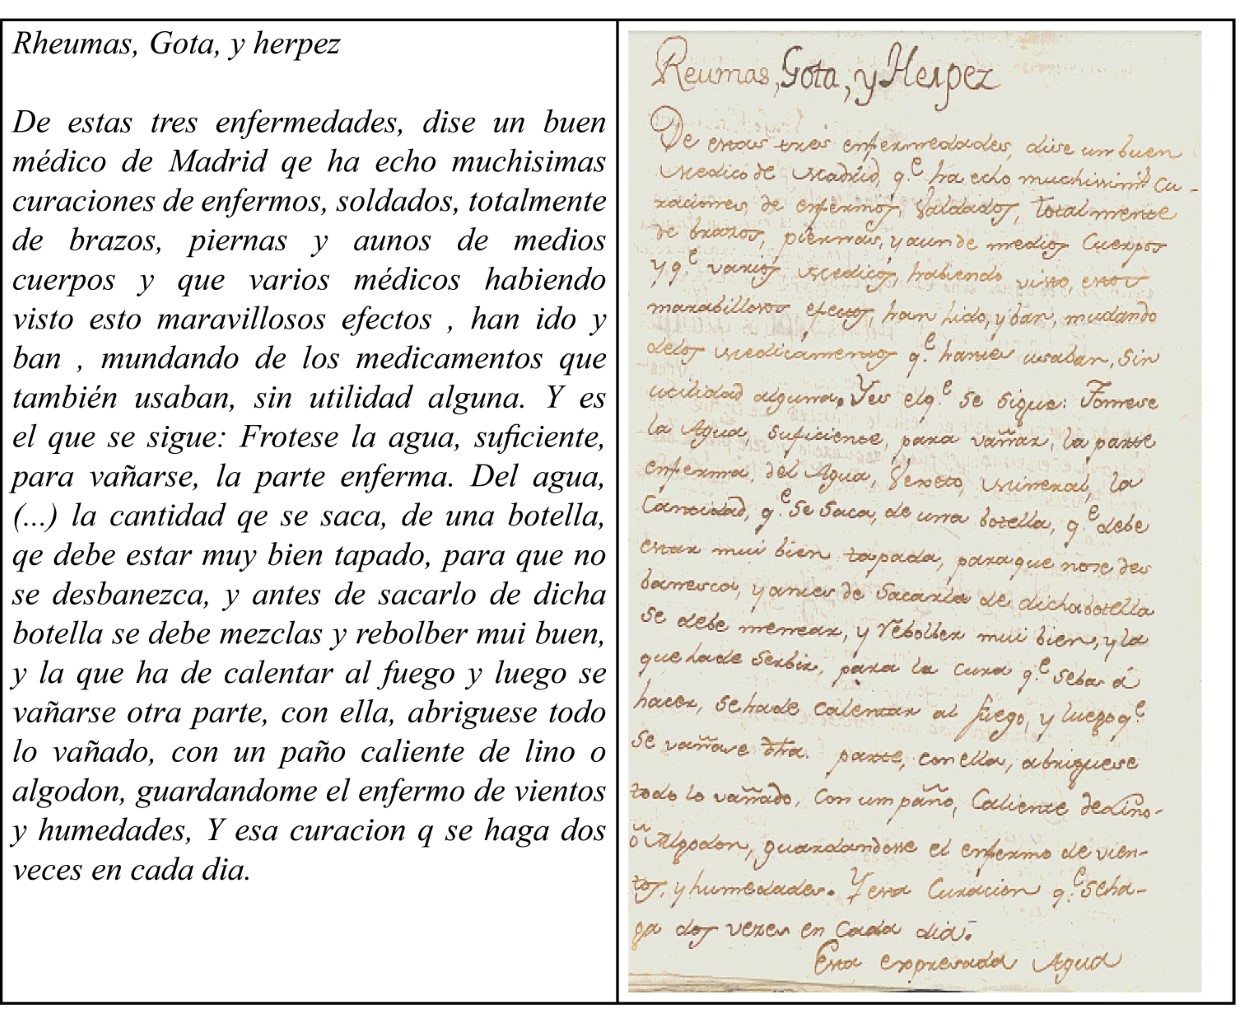 Rheumas, Gota, y herpez
De estas tres enfermedades, dise un buen
médico de Madrid qe ha echo muchisimas
curaciones de enfermos, soldados, totalmente
de brazos, piernas y aunos de medios
cuerpos y que varios médicos habiendo
visto esto maravillosos efectos , han ido y
ban , mundando de los medicamentos que
también usaban, sin utilidad alguna. Y es
el que se sigue: Frotese la agua, suficiente,
para vañarse, la parte enferma. Del agua,
(...) la cantidad qe se saca, de una botella,
qe debe estar muy bien tapado, para que no
se desbanezca, y antes de sacarlo de dicha
botella se debe mezclas y rebolber mui buen,
y la que ha de calentar al fuego y luego se
vañarse otra parte, con ella, abriguese todo
lo vañado, con un paño caliente de lino o
algodon, guardandome el enfermo de vientos
y humedades, Y esa curacion q se haga dos
veces en cada dia.
Reumas, Gota, y Herpez
De estas tres enfermedades, dise un buen
Medico de Madrid, q.e ha echo muchisim.s Cu-
raciones, de enfermos, valdados, totalmente
de brazos, piernas, y aun de medios Cuerpos
y q.e varios Medicos, habiendo visto, estos
marabillosos efectos, han hido, y ban, mudando
delos Medicamentos q.e hantes usaban, Sin
utilidad alguna. Y es el q.e se sigue: Tomese
la Agua Suficiente, para vañar, la parte
enferma, del Agua, Mineral, la
Cantidad, q.e Se Saca, de una botella, q.e debe
estar mui bien tapada, para que no se des
banesca, y antes de Sacarla de dicha botella
Se debe menear, y rebolber mui bien, y la
que hade Serbir, para la Cura q.e Seba á
hacer, Sehade Calentar al fuego, y luego q.e
Se vañase dha. parte, con ella, abriguese
todo lo vañado, Con un paño, Caliente de Lino-
ô Algodon, guardandose el enfermo de vien-
tos, y humedades. Y esta Curacion q.e Seha-
ga dos vezes en Cada dia.
Esta expresada Agua